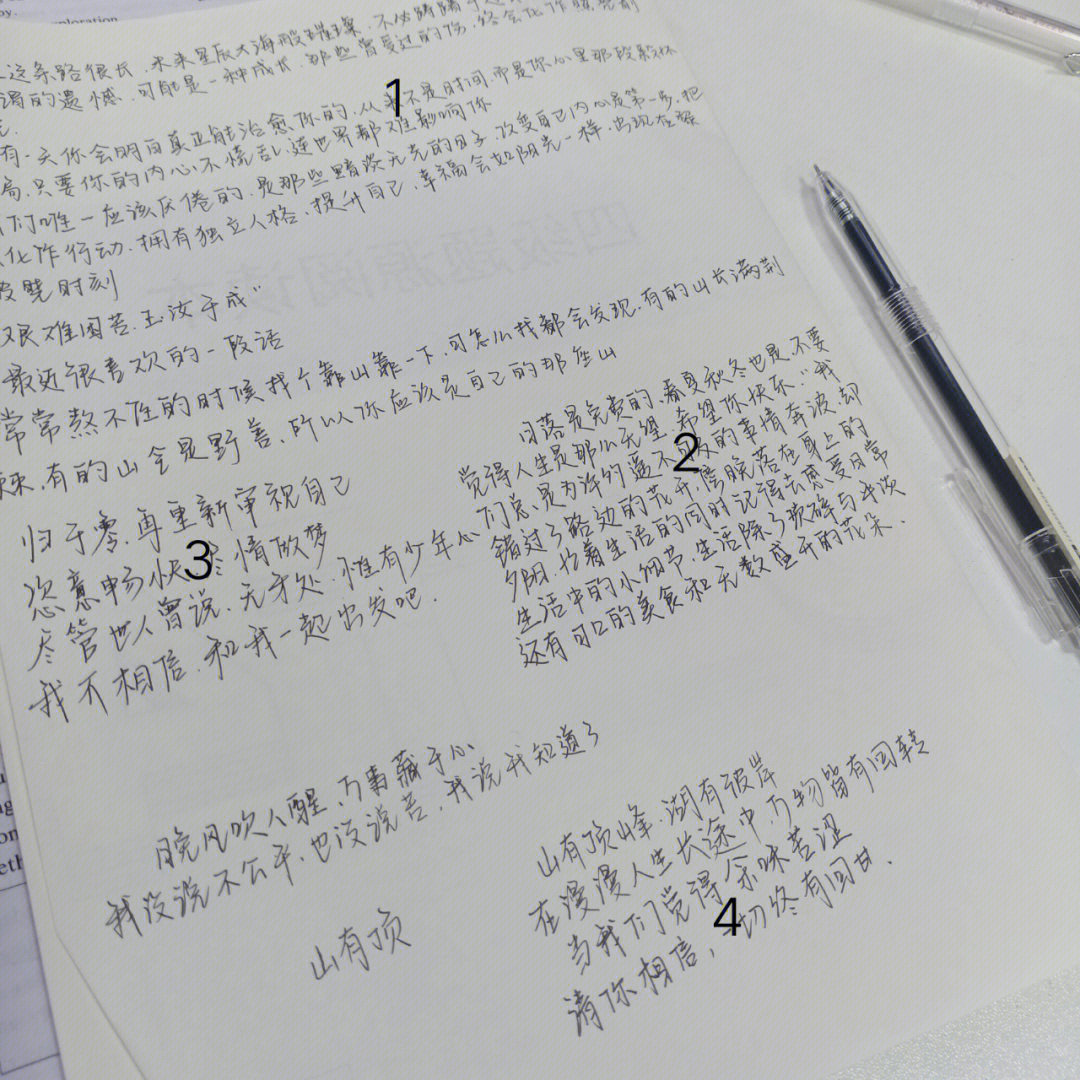 这条路很长，未来星辰大海般璀璨，不必踌躇于
的遗憾，可能是一种成长，那些曾受过的伤，终会化作照亮前
有一天你会明白真正能治愈你的，从来不是时间，而是你心里那段释怀
局，只要你的内心不慌乱，连世界都难影响你
们唯一应该厌倦的，是那些黯淡无光的日子，改变自己内心是第一步，把
化作行动，拥有独立人格，提升自己，幸福会如阳光一样，出现在
破晓时刻
艰难困苦，玉汝于成"
最近很喜欢的一段话
常常熬不住的时候找个靠山靠一下，可怎么找都会发现，有的山长满荆
棘，有的山全是野兽，所以你应该是自己的那座山
归于零，再重新审视自己
恣意畅快 情做梦
尽管世人曾说，无才处，惟有少年心
我不相信，和我一起出发吧．
日落是免费的，春夏秋冬也是，不要
觉得人生是那么无望，希望你快乐．"我
们总是为许多遥不可及的事情奔波，却
错过了路边的花开，傍晚落在身上的
夕阳，忙着生活的同时记得去感受日常
生活中的小细节，生活除了琐碎与平淡
还有可口的美食和无数盛开的花朵．
晚风吹人醒，万事藏于心
我没说不公平，也没说苦，我说我知道了
山有顶
山有顶峰，湖有彼岸
在漫漫人生长途中，万物皆有回转
当我们觉得余味苦涩
请你相信，一切终有回甘．
1
2
3
4